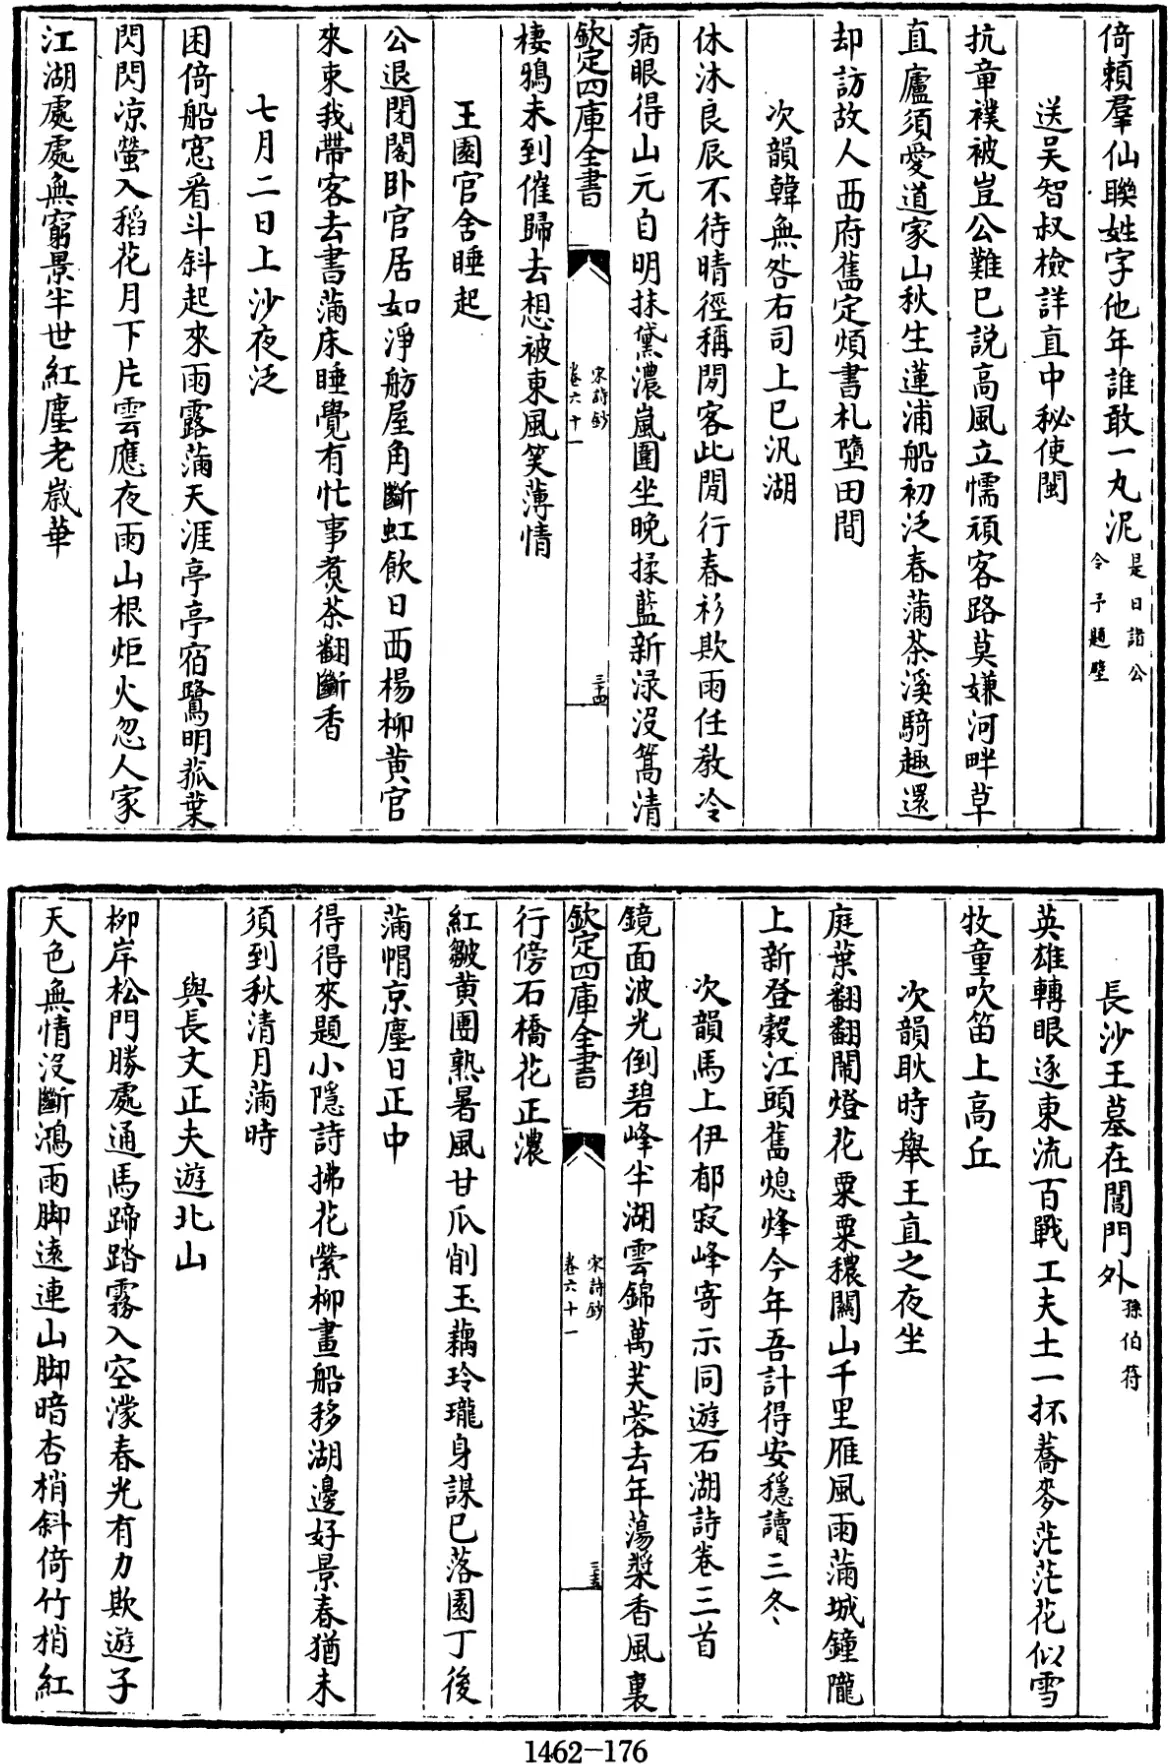 倚賴羣仙聯姓字他年誰敢一丸泥是日諸公令予題壁
送吳智叔檢詳直中秘使閩
抗章襆被豈公難已説高風立懦頑客路莫嫌河畔草
直廬須愛道家山秋生蓮浦船初泛春滿茶溪騎趣還
却訪故人西府舊定煩書札墮田間
次韻韓無咎右司上巳汎湖
休沐良辰不待晴徑稱閒客此閒行春衫欺雨任教冷
病眼得山元自明抹黛濃嵐圍坐晚揉藍新渌沒篙清
欽定四庫全書
宋詩鈔
卷六十一
三十四
棲鴉未到催歸去想被東風笑薄情
王園官舍睡起
公退閉閣卧官居如淨舫屋角斷虹飲日西楊柳黄官
來束我帶客去書滿床睡覺有忙事煮茶翻斷香
七月二日上沙夜泛
困倚船窓看斗斜起來雨露滿天涯亭亭宿鷺明菰葉
閃閃凉螢入稻花月下片雲應夜雨山根炬火忽人家
江湖處處無窮景半世紅塵老嵗華
長沙王墓在閶門外孫伯符
英雄轉眼逐東流百戰工夫土一抔蕎麥茫茫花似雪
牧童吹笛上高丘
次韻耿時舉王直之夜坐
庭葉翻翻鬧燈花粟粟穠關山千里雁風雨滿城鐘隴
上新登穀江頭舊熄烽今年吾計得安穩讀三冬
次韻馬上伊郁寂峰寄示同遊石湖詩卷三首
鏡面波光倒碧峰半湖雲錦萬芙蓉去年蕩槳香風裏
欽定四庫全書
宋詩鈔
卷六十一
三十五
行傍石橋花正濃
紅皺黄團熟暑風甘瓜削玉藕玲瓏身謀已落園丁後
滿帽京塵日正中
得得來題小隱詩拂花縈柳畫船移湖邊好景春猶未
須到秋清月滿時
與長文正夫遊北山
柳岸松門勝處通馬蹄踏霧入空濛春光有力欺遊子
天色無情沒斷鴻雨脚遠連山脚暗杏梢斜倚竹梢紅
1462-176